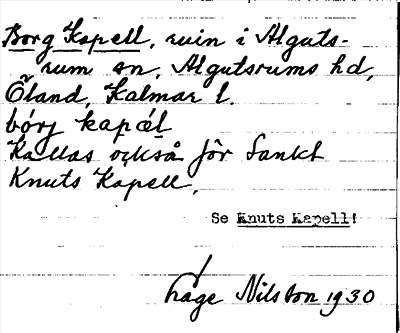 Borg Kapell, ruin i Alguts-
rum sn, Algutsrums hd,
Öland, Kalmar l.
bórj kapǽl
Kallas också för Sankt
Knuts Kapell.
Se Knuts Kapell!
Hage Nilsson 1930